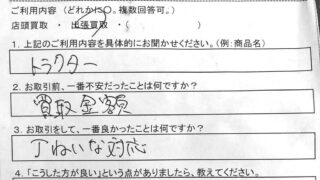 ご利用内容（どれかに○。複数回答可。）
店頭買取・出張買取・（
1. 上記のご利用内容を具体的にお聞かせください。（例：商品名）
トラクター
2. お取引前、一番不安だったことは何ですか？
買取金額
3. お取引をして、一番良かったことは何ですか？
丁ねいな対応
4. 「こうした方が良い」という点がありましたら、教えてください。